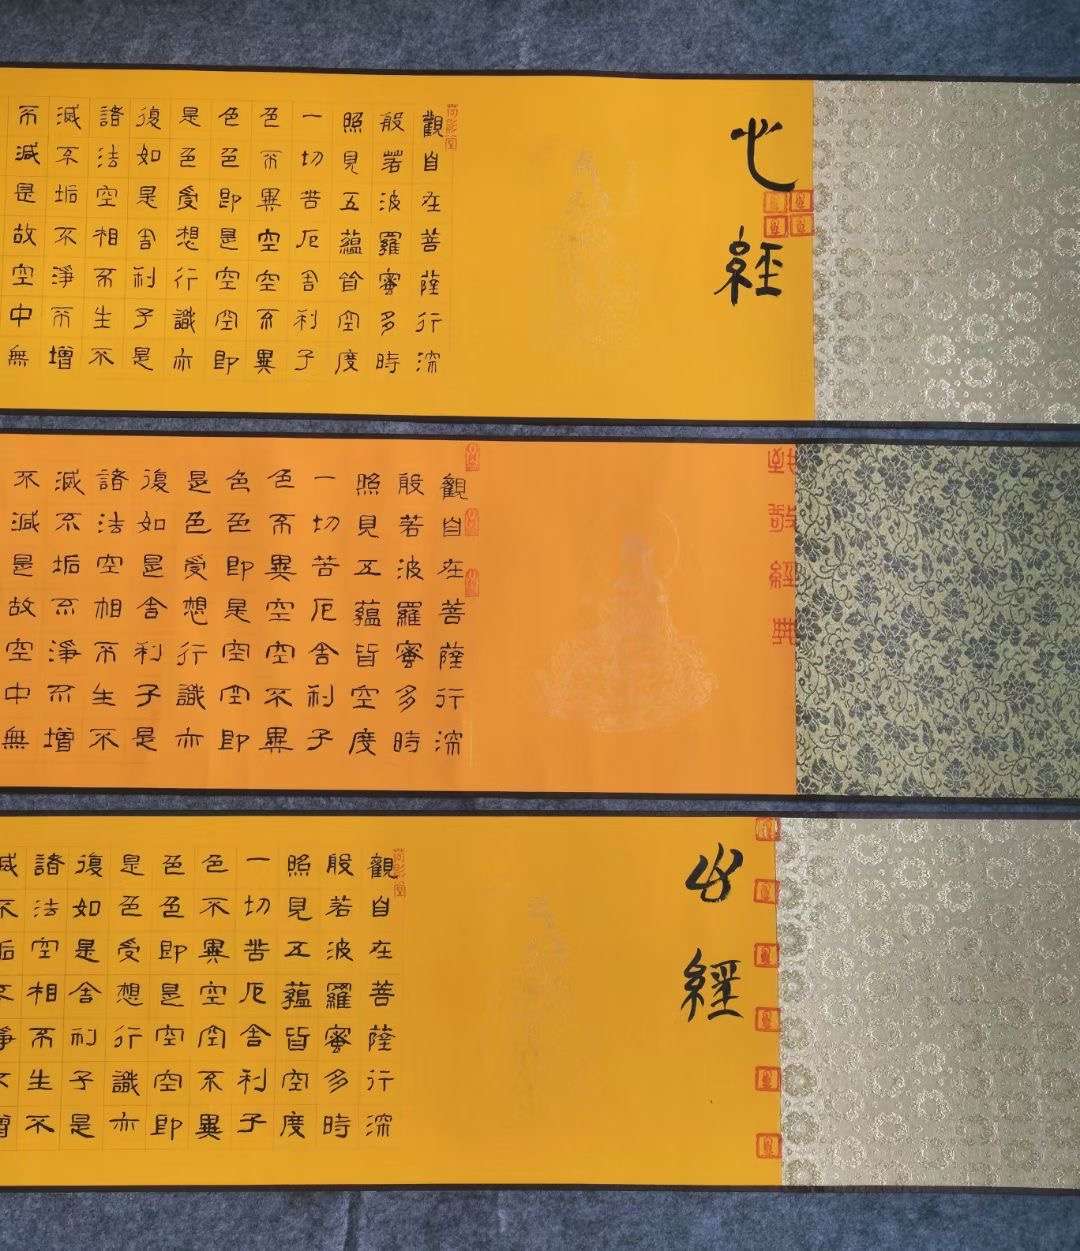 心經
觀自在菩薩行深
般若波羅蜜多時
照見五蘊皆空度
一切苦厄舍利子
色不異空空不異
色色即是空空即
是色受想行識亦
復如是舍利子是
諸法空相不生不
滅不垢不淨不增
不減是故空中無
經典
觀自在菩薩行深
般若波羅蜜多時
照見五蘊皆空度
一切苦厄舍利子
色不異空空不異
色色即是空空即
是色受想行識亦
復如是舍利子是
諸法空相不生不
滅不垢不淨不增
不減是故空中無
心經
觀自在菩薩行深
般若波羅蜜多時
照見五蘊皆空度
一切苦厄舍利子
色不異空空不異
色色即是空空即
是色受想行識亦
復如是舍利子是
諸法空相不生不
滅不垢不淨不增